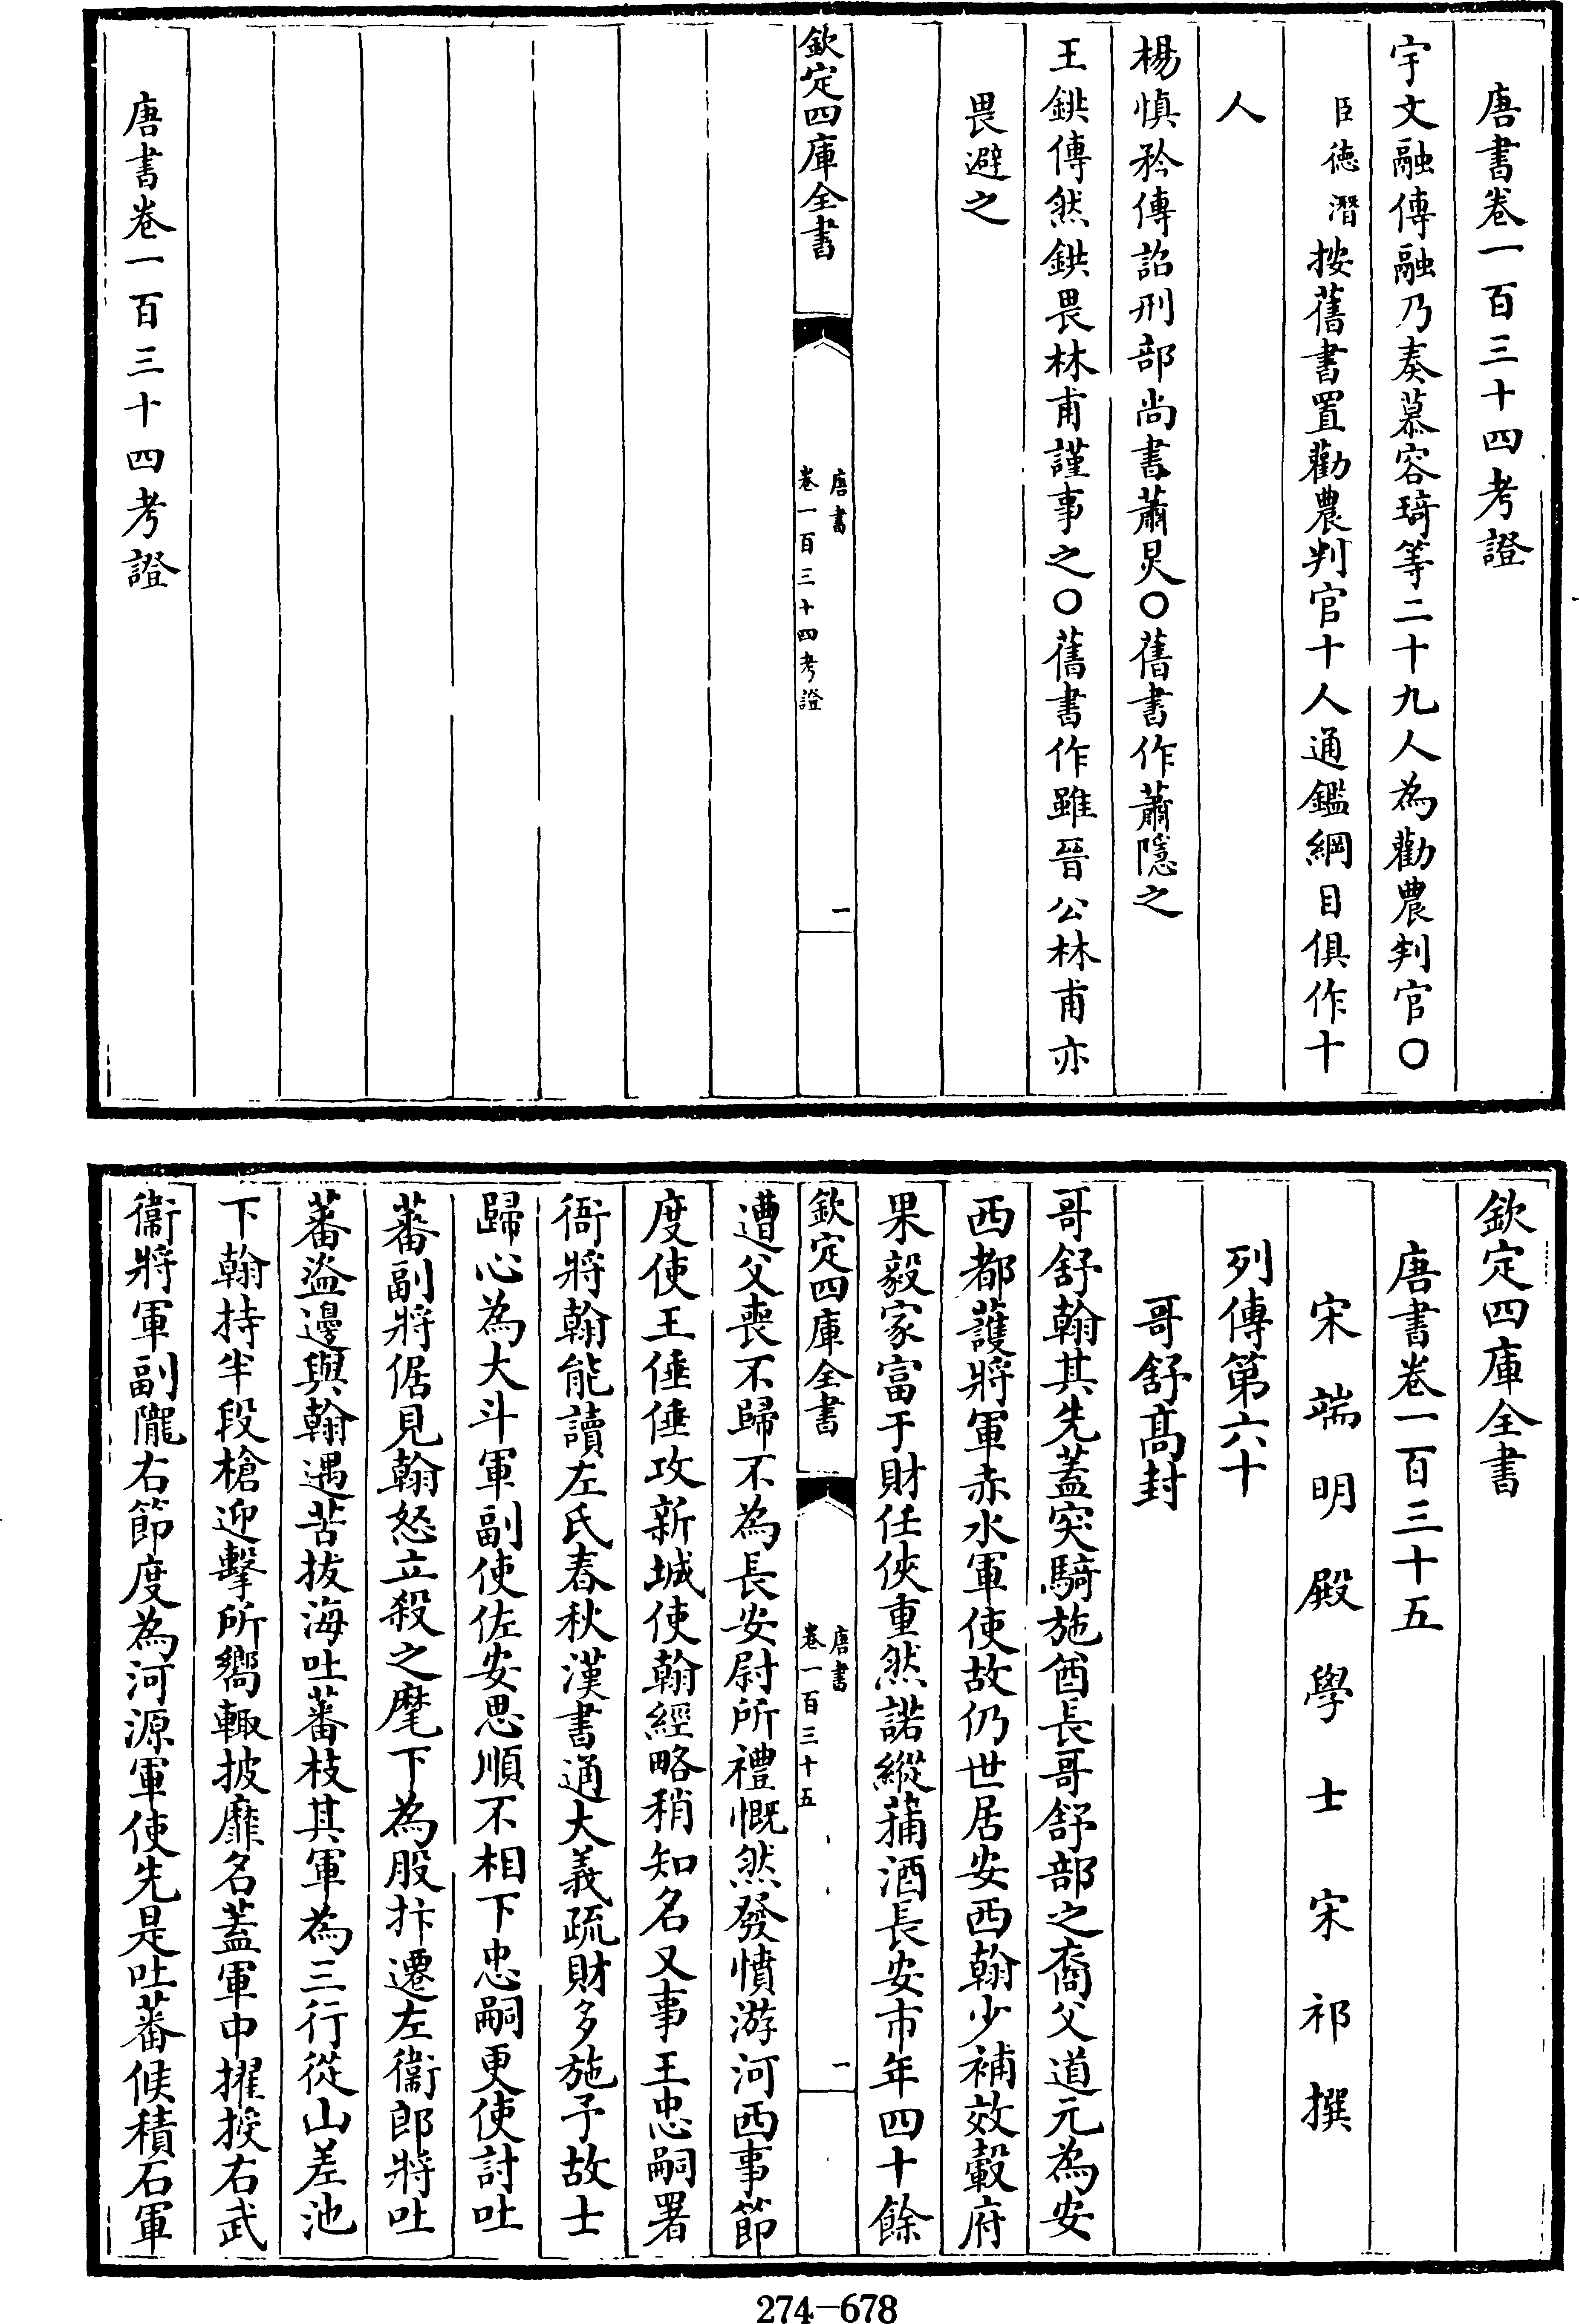 唐書卷一百三十四考證
宇文融傳融乃奏慕容琦等二十九人為勸農判官○
臣德潛按舊書置勸農判官十人通鑑綱目俱作十
人
楊慎矜傳詔刑部尚書蕭炅○舊書作蕭隱之
王鉷傳然鉷畏林甫謹事之○舊書作雖晉公林甫亦
畏避之
欽定四庫全書
唐書
卷一百三十四考證
一
唐書卷一百三十四考證
欽定四庫全書
唐書卷一百三十五
宋端明殿學士宋祁撰
列傳第六十
哥舒髙封
哥舒翰其先蓋突騎施酋長哥舒部之裔父道元為安
西都護將軍赤水軍使故仍世居安西翰少補效轂府
果毅家富于財任俠重然諾縱蒱酒長安市年四十餘
欽定四庫全書
唐書
卷一百三十五
一
遭父喪不歸不為長安尉所禮慨然發憤游河西事節
度使王倕倕攻新城使翰經略稍知名又事王忠嗣署
衙將翰能讀左氏春秋漢書通大義疏財多施予故士
歸心為大斗軍副使佐安思順不相下忠嗣更使討吐
蕃副將倨見翰怒立殺之麾下為股抃遷左衞郎將吐
蕃盗邊與翰遇苦拔海吐蕃枝其軍為三行從山差池
下翰持半段槍迎擊所嚮輙披靡名蓋軍中擢授右武
衞將軍副隴右節度為河源軍使先是吐蕃候積石軍
274-678